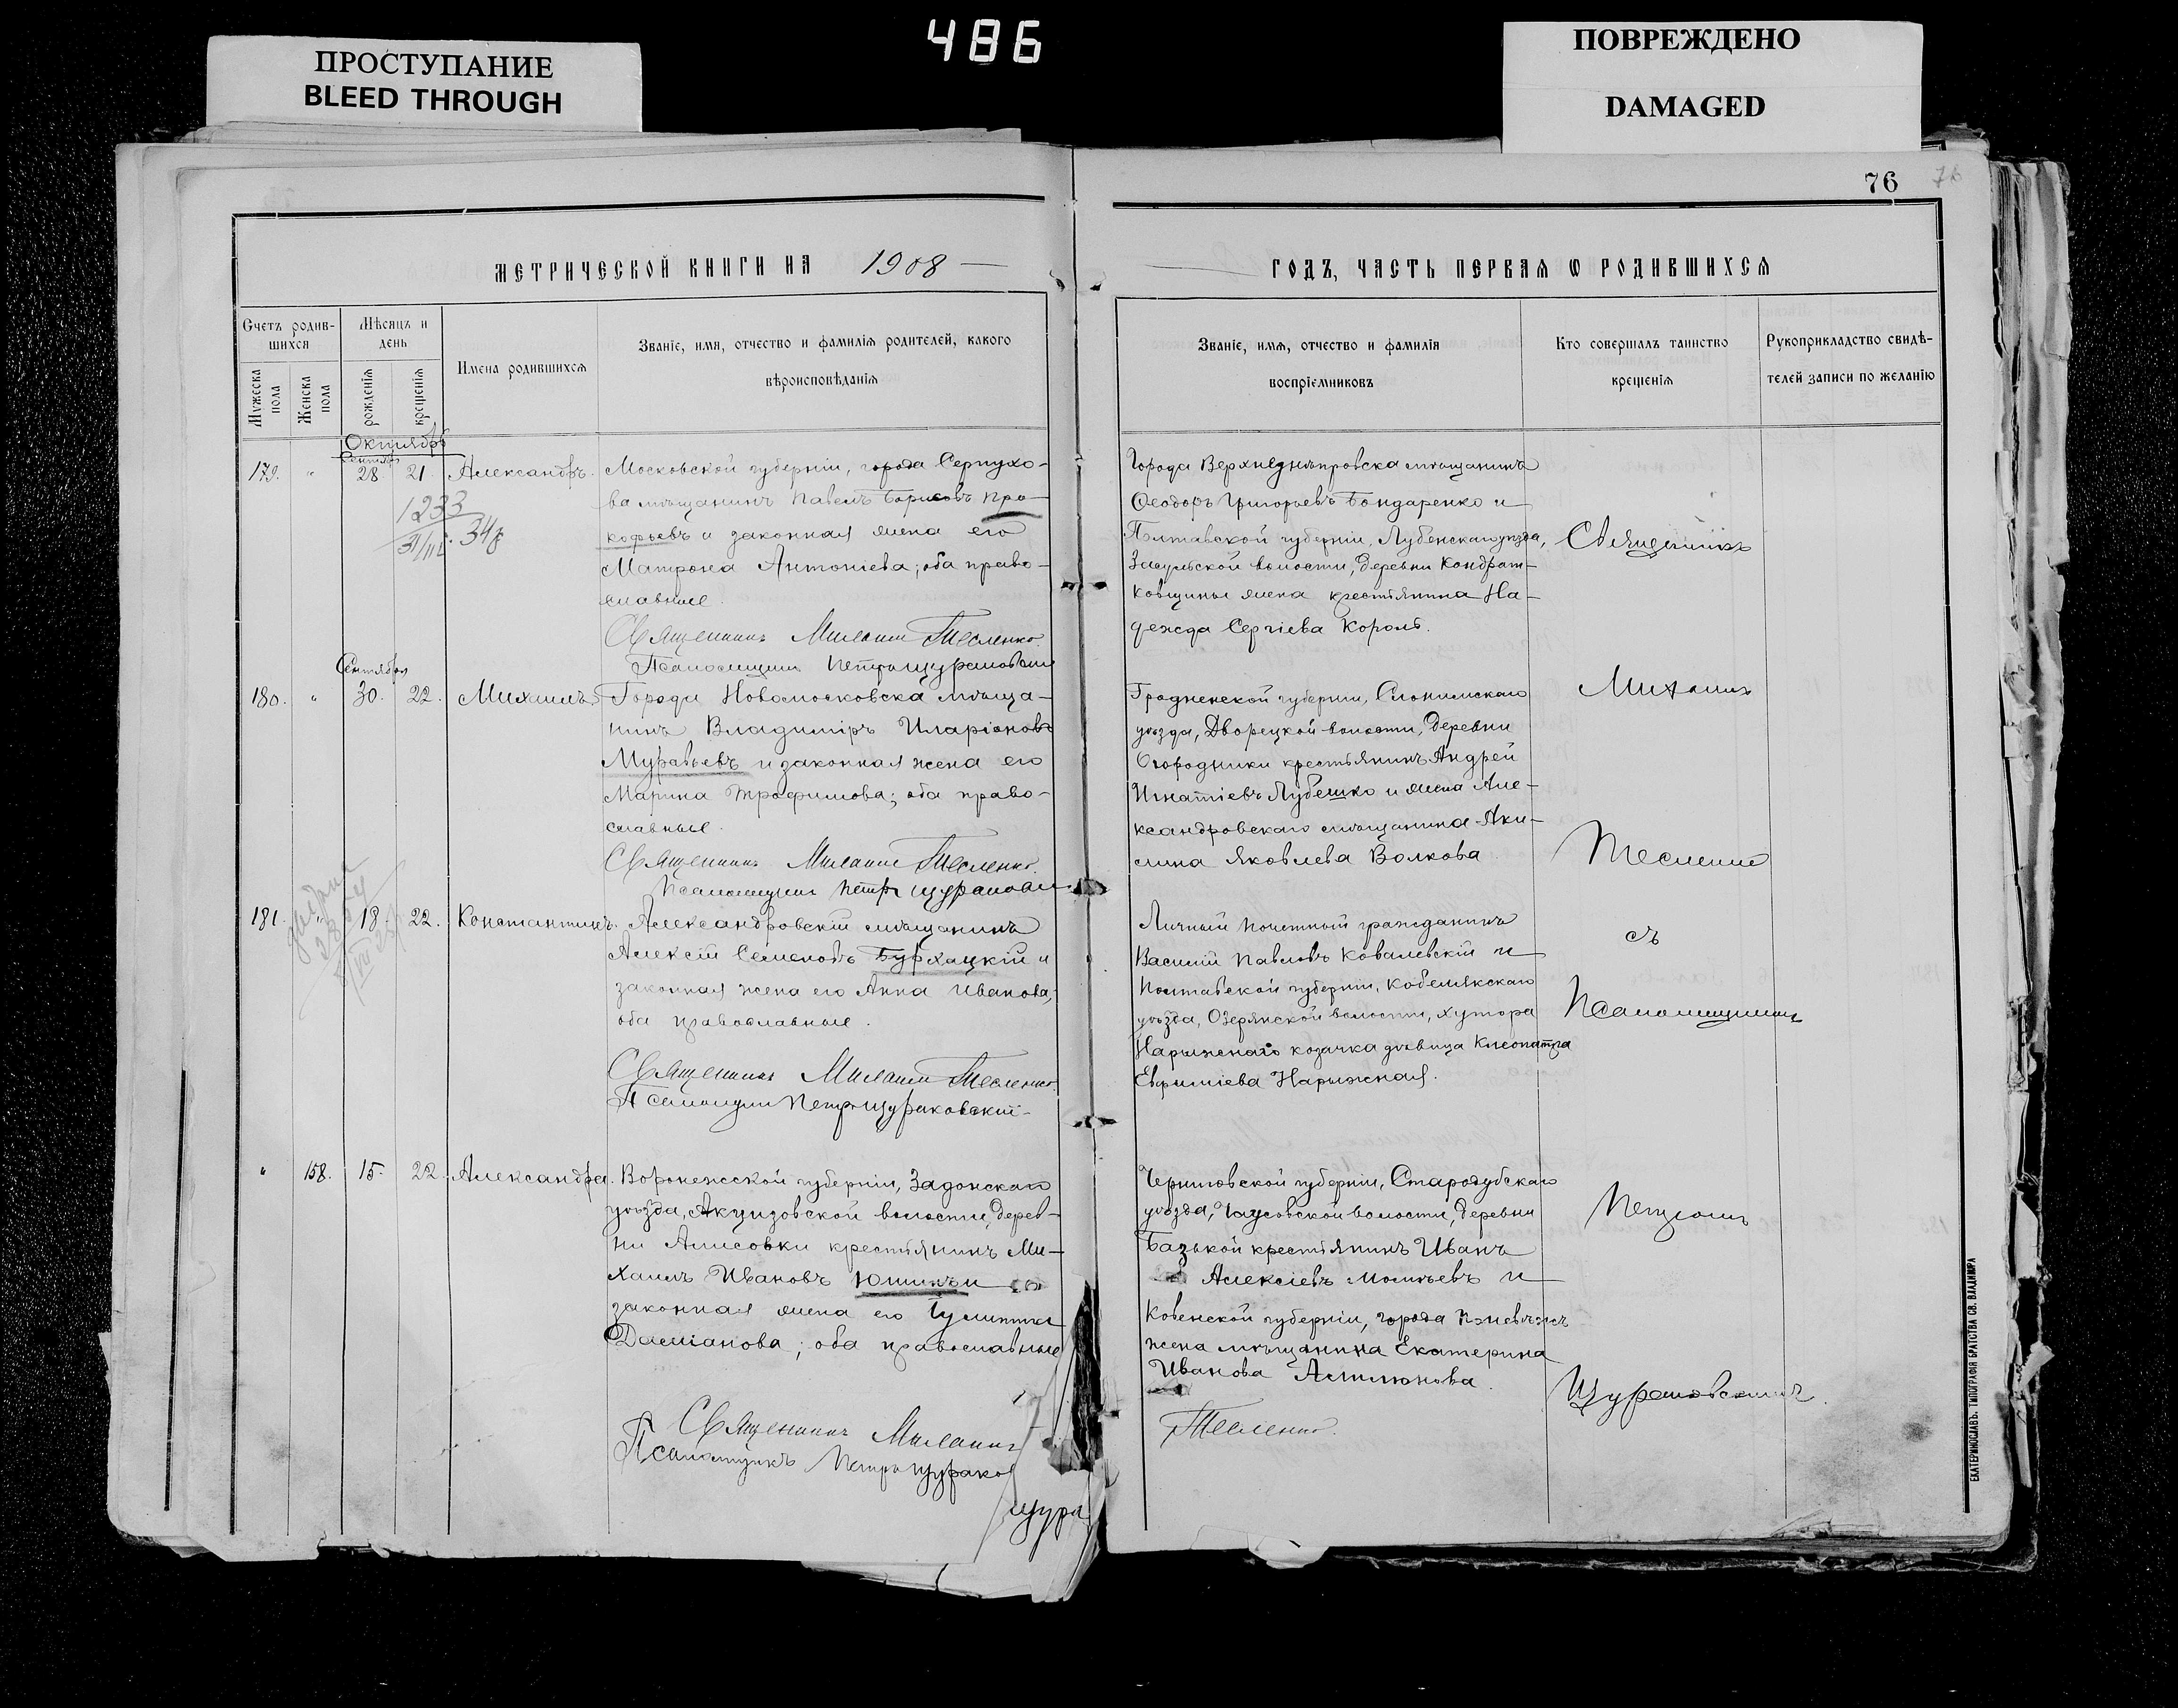 486
ПРОСТУПАНИЕ
BLEED THROUGH
ПОВРЕЖДЕНО
DAMAGED
76
76
МЕТРИЧЕСКОЙ КНИГИ НА 1908
ГОДЪ, ЧАСТЬ ПЕРВАЯ Ѡ РОДИВШИХСЯ
Счетъ родив-
шихся
Мужеска
пола
Женска
пола
Мѣсяцъ и
день
рожденія
крещенія
Имена родившихся
Званіе, имя, отчество и фамилія родителей, какого
вѣроисповѣданія
Званіе, имя, отчество и фамилія
воспріемниковъ
Кто совершалъ таинство
крещенія
Рукоприкладство свидѣ-
телей записи по желанію
Октябрь
179. " 28. 21. Александръ.
1233
348
Московской губерніи, города Серпухо-
ва мѣщанинъ Павелъ Борисовъ Про-
кофьевъ и законная жена его
Матрона Антоніева; оба право-
славные.
Священникъ Михаилъ Тесленко
Псаломщикъ Петръ Щураковскій
Города Верхнеднѣпровска мѣщанинъ
Ѳеодоръ Григорьевъ Бондаренко и
Полтавской губерніи, Лубенскаго уѣзда,
Засульской волости, деревни Кондрат-
ковщины жена крестьянина На-
дежда Сергіева Король.
Сентября
180. " 30. 22. Михаилъ
Города Новомосковска мѣща-
нинъ Владиміръ Иларіоновъ
Муравьевъ и законная жена его
Марина Трофимова; оба право-
славные.
Священникъ Михаилъ Тесленко.
Псаломщикъ Петръ Щураковскій
Гродненской губерніи, Слонимскаго
уѣзда, Дворецкой волости, деревни
Огородники крестьянинъ Андрей
Игнатіевъ Лубешко и жена Але-
ксандровскаго мѣщанина Аки-
лина Яковлева Волкова.
181. " 18. 22. Константинъ.
Александровскій мѣщанинъ
Алексій Семеновъ Бурхацкій и
законная жена его Анна Иванова;
оба православные.
Священникъ Михаилъ Тесленко.
Псаломщикъ Петръ Щураковскій
Личный почетный гражданинъ
Василій Павловъ Ковалевскій и
Полтавской губерніи, Кобелякскаго
уѣзда, Озерянской волости, хутора
Нарыжнаго козачка дѣвица Клеопатра
Евфиміева Нарыжная.
" 158. 15. 22. Александра.
Воронежской губерніи, Задонскаго
уѣзда, волости, дерев-
ни крестьянинъ Ми-
хаилъ Ивановъ Юшинъ и
законная жена его
Даміанова; оба православные
Священникъ Михаилъ
Псаломщикъ Петръ Щураков
Щура
Черниговской губерніи, Стародубскаго
уѣзда, волости, деревни
крестьянинъ Иванъ
Алексіевъ и
Ковенской губерніи, города
жена мѣщанина Екатерина
Иванова
Тесленко.
Священникъ
Михаилъ
Тесленко
съ
Псаломщикомъ
Петромъ
Щураковскимъ.
ЕКАТЕРИНОСЛАВЪ. ТИПОГРАФІЯ БРАТСТВА СВ. ВЛАДИМІРА